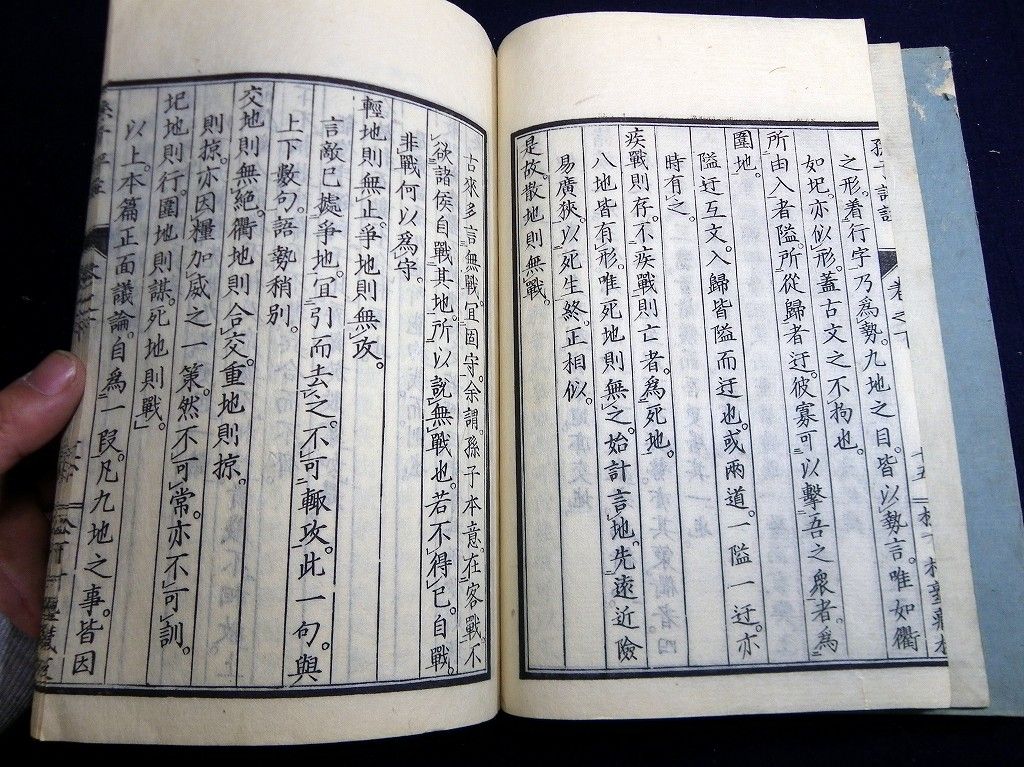 之形。着行字乃爲勢。九地之目。皆以勢言。唯如衢
如圯。亦似形。蓋古文之不拘也。
所由入者隘。所從歸者迂。彼寡可以擊吾之衆者。爲
圍地。
隘迂互文。入歸皆隘而迂也。或兩道。一隘一迂。亦
時有之。
疾戰則存。不疾戰則亡者。爲死地。
八地皆有形。唯死地則無之。始計言地。先遠近險
易廣狹。以死生終。正相似。
是故。散地則無戰。
古來多言無戰。宜固守。余謂。孫子本意。在客戰不
欲諸侯自戰其地。所以說無戰也。若不得已。自戰。
非戰何以爲守。
輕地則無止。爭地則無攻。
言敵已處爭地。宜引而去之。不可輙攻。此一句。與
上下數句。語勢稍別。
交地則無絕。衢地則合交。重地則掠。
則掠。亦因糧加威之一策。然不可常。亦不可訓。
圯地則行。圍地則謀。死地則戰。
以上。本篇正面議論。自爲一段。凡九地之事。皆因